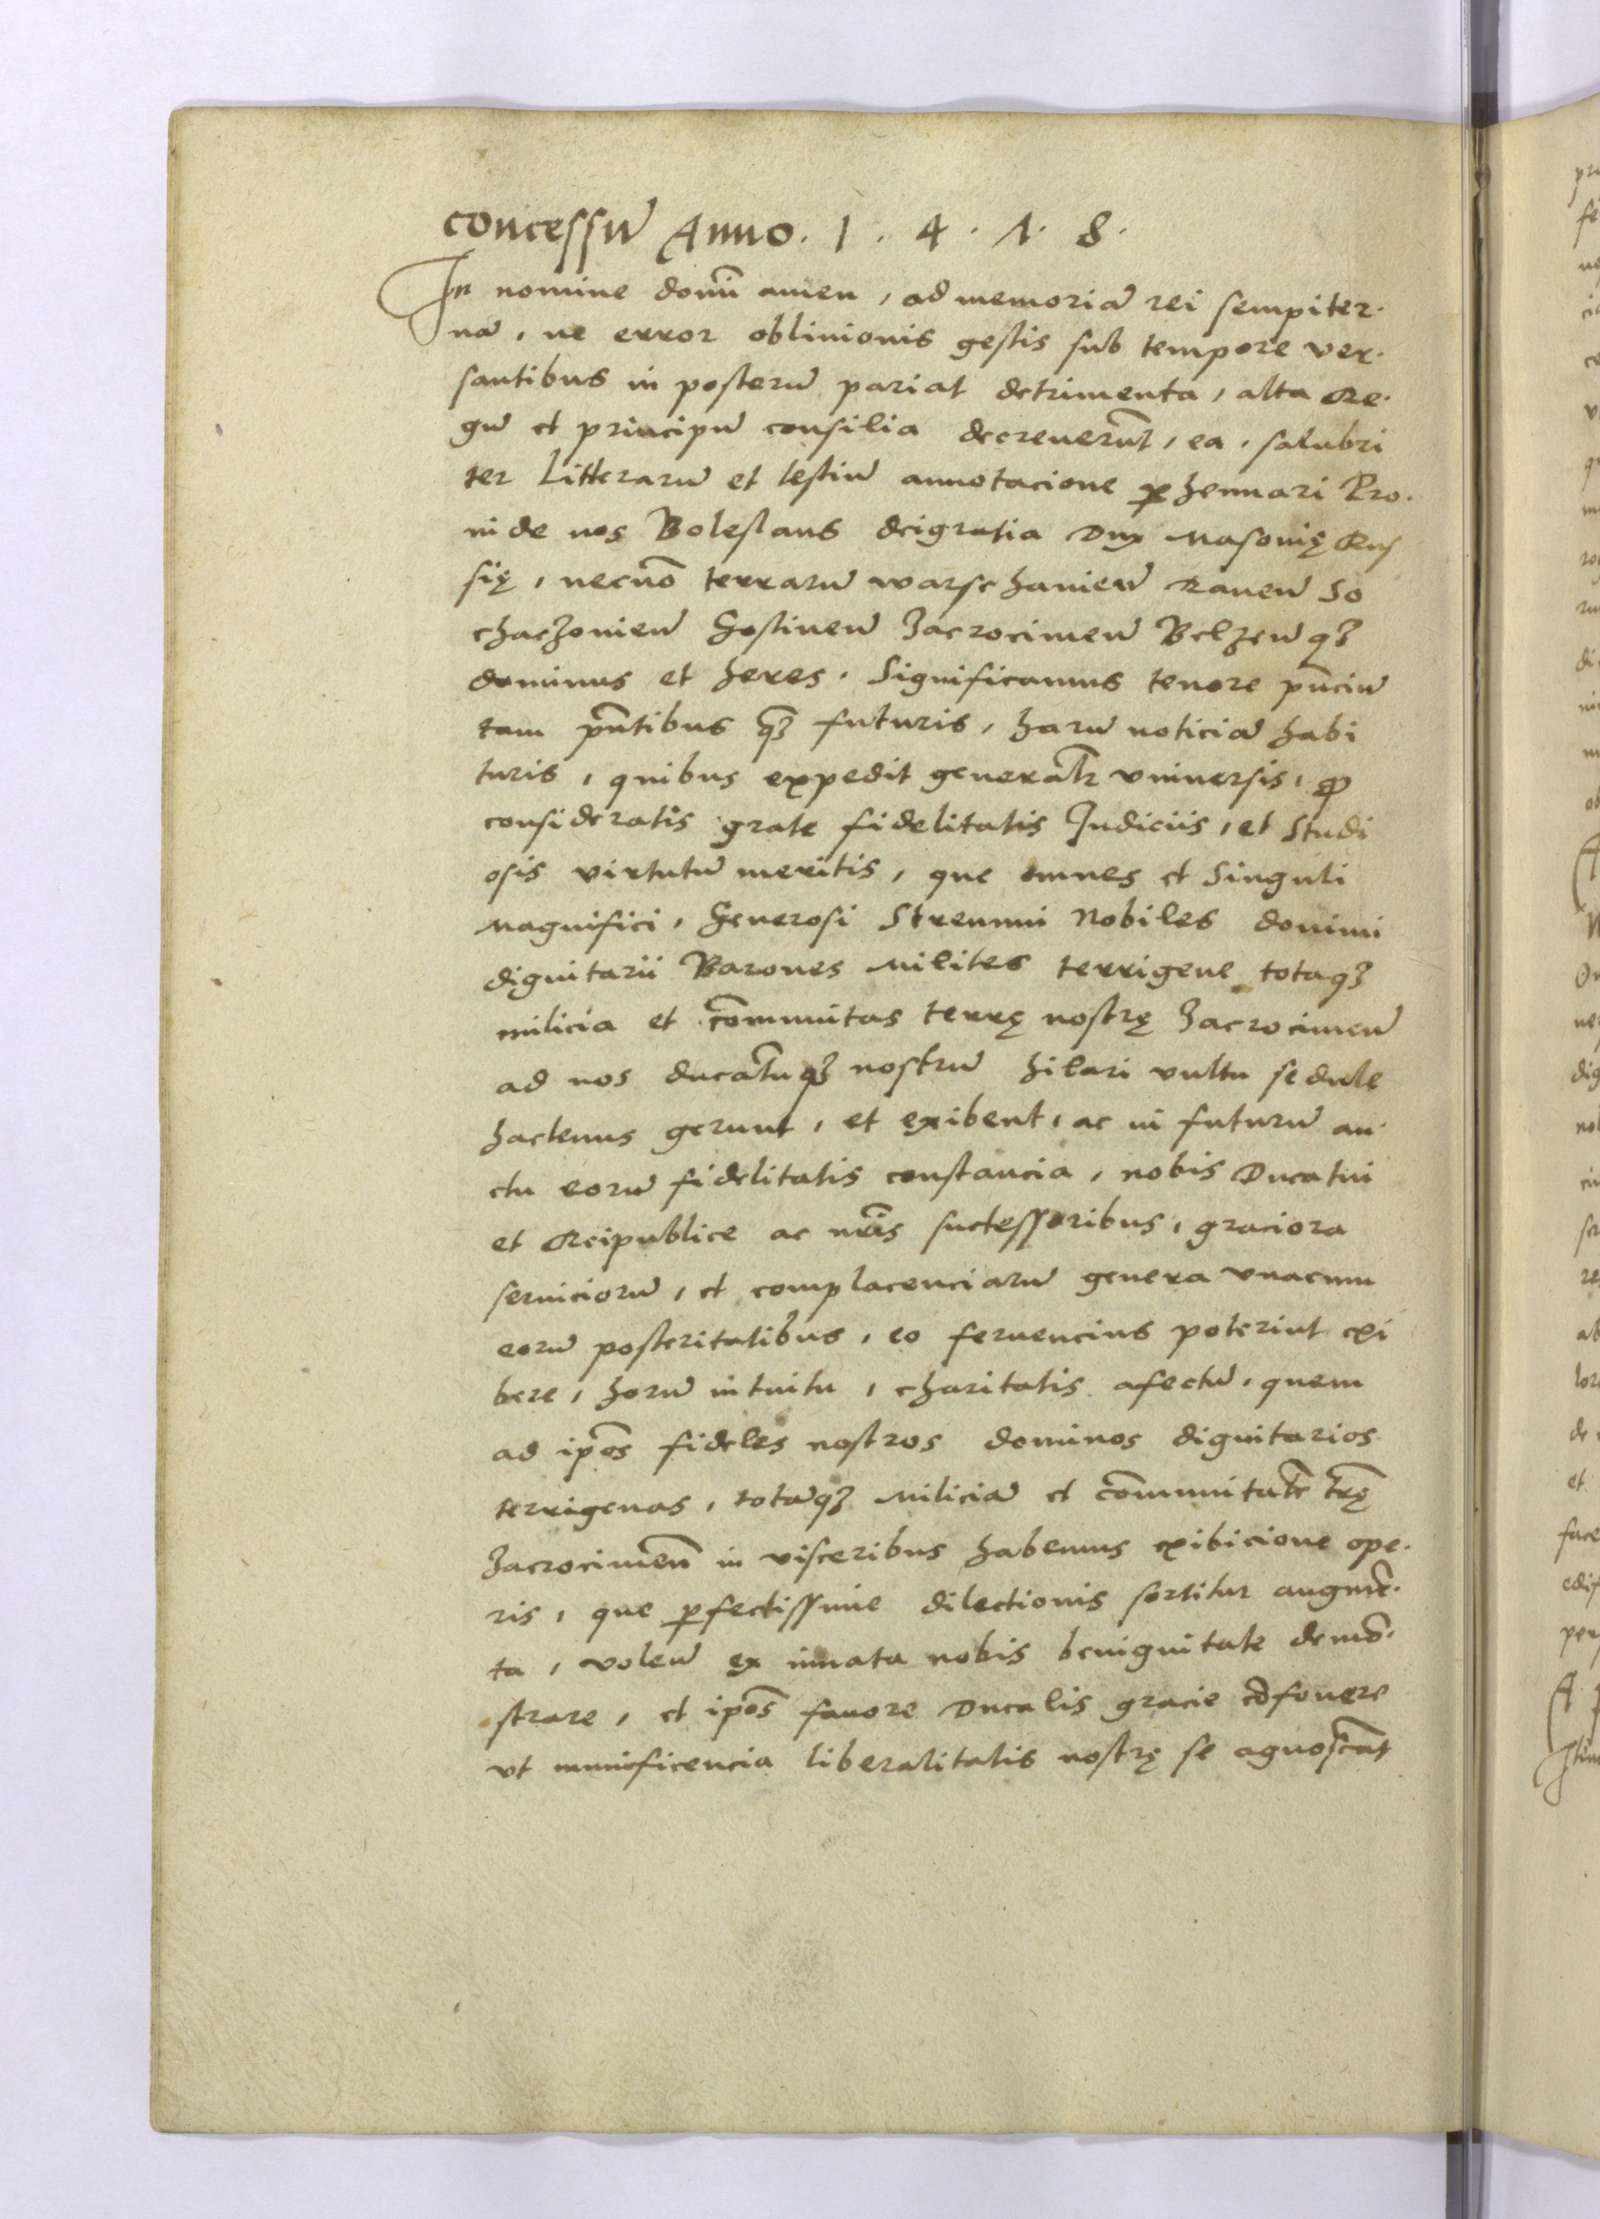 concessū Anno . 1 . 4 . 1 . 8 .
In nomine domī amen, ad memoriā rei sempiter.
nā, ne error oblivionis gestis sub tempore ver.
santibus in posterū pariat detrimenta, alta Re.
gū et principū consilia decreverūt, ea, salubri
ter Litterarū et testiū annotacione perhennari Pro.
inde nos Boleslaus deigratia Dux Masovię Rus
się, necnō terrarū warschavieñ Raveñ So
chaczovieñ Gostineñ Zacrocimeñ Belzeñ q3
dominus et heres. Significamus tenore pñciū
tam pñtibus q̃3 futuris, harū noticiā habi
turis, quibus expedit generalr̃ vniversis, ꝙ
consideratis grate fidelitatis Judiciis, et Studi
osis virtutū meritis, que omnes et Singuli
Magnifici, Generosi Strennui Nobiles domini
dignitarii Barones Milites terrigene totaq3
milicia et cōmunitas terrę nostrę Zacrocimeñ
ad nos ducatūq3 nostrū hilari vultu sedule
hactenus gerunt, et exibent, ac in futurū au.
ctu eorū fidelitatis constancia, nobis Ducatui
et Reipublice ac nr̃is successoribus, graciora
serviciorū, et complacenciarū genera vnacum
eorū posteritatibus, eo fervencius poterint exi
bere, horū intuitu, charitatis afectū, quem
ad ip̄os fideles nostros dominos dignitarios
terrigenas, totāq3 Miliciā et cōmunitatē tr̄ę
Zacrocimeñ in visceribus habemus exibicione ope.
ris, que p̱fectissime dilectionis sortitur augmē.
ta, voleñ ex innata nobis benignitate demō.
strare, et ip̄os favore Ducalis gracie cōfovere
vt munificencia liberalitatis nostrę se agnoscāt